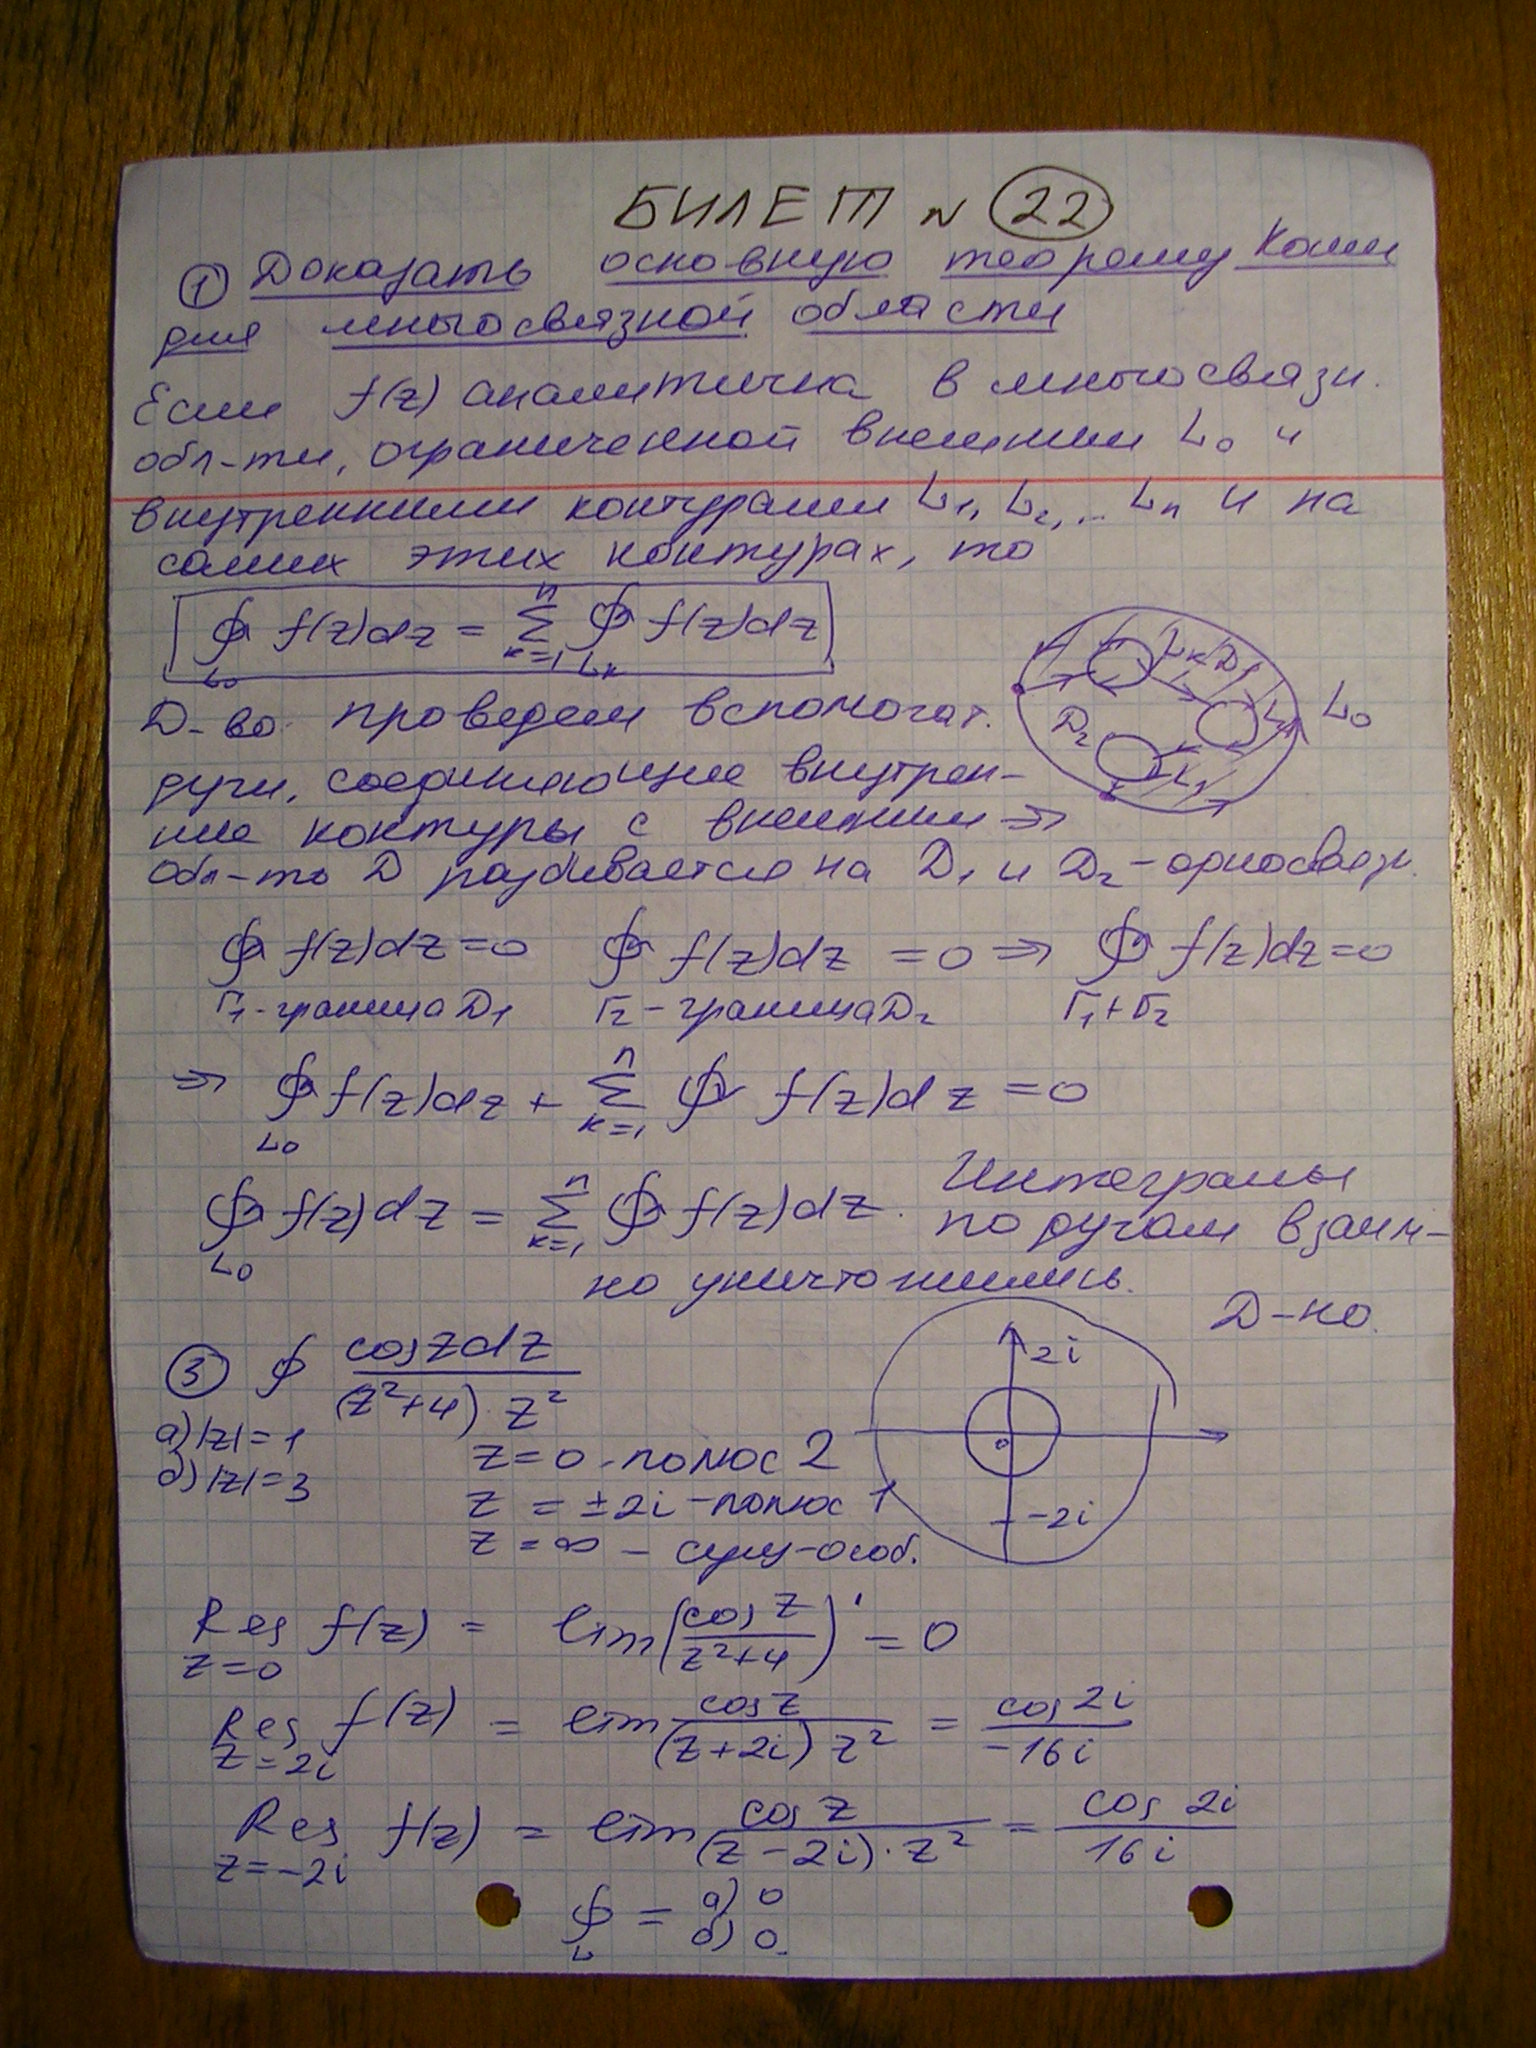 БИЛЕТ N 22
① Доказать основную теорему Коши
для многосвязной области
Если f(z) аналитична в многосвязн.
обл-ти, ограниченной внешним L₀ и
внутренними контурами L₁, L₂, … Lₙ и на
самих этих контурах, то
∮ f(z)dz = Σ ∮ f(z)dz
L₀ k=1 n Lₖ
Lₖ D₁
D₂ L₀
L₁
Д-во: проведем вспомогат.
дуги, соединяющие внутрен-
ние контуры с внешним ⇒
Обл-ть D разбивается на D₁ и D₂ - односвязн.
∮ f(z)dz = 0 ∮ f(z)dz = 0 ⇒ ∮ f(z)dz = 0
Г₁ - граница D₁ Г₂ - граница D₂ Г₁ + Г₂
⇒ ∮ f(z)dz + Σ ∮ f(z)dz = 0
L₀ k=1 n
∮ f(z)dz = Σ ∮ f(z)dz. Интегралы
L₀ k=1 n по дугам взаим-
но уничтожились.
Д-но.
③ ∮ cos z dz / (z²+4)·z²
а) |z| = 1
б) |z| = 3
2i
0
-2i
z = 0 - полюс 2
z = ±2i - полюс 1
z = ∞ - сущ-особ.
Res f(z) = lim (cos z / z²+4)' = 0
z=0
Res f(z) = lim cos z / (z+2i) z² = cos 2i / -16i
z=2i
Res f(z) = lim cos z / (z-2i)·z² = cos 2i / 16i
z=-2i
∮ = а) 0
L б) 0